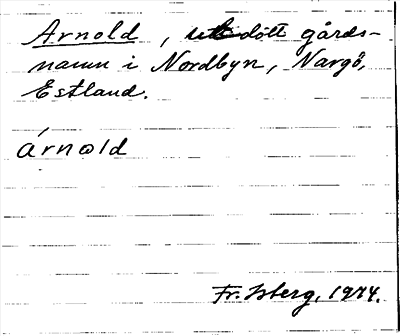 Arnold, utdött gårds-
namn i Nordbyn, Nargö,
Estland.
árnold
Fr. Isberg, 1974.